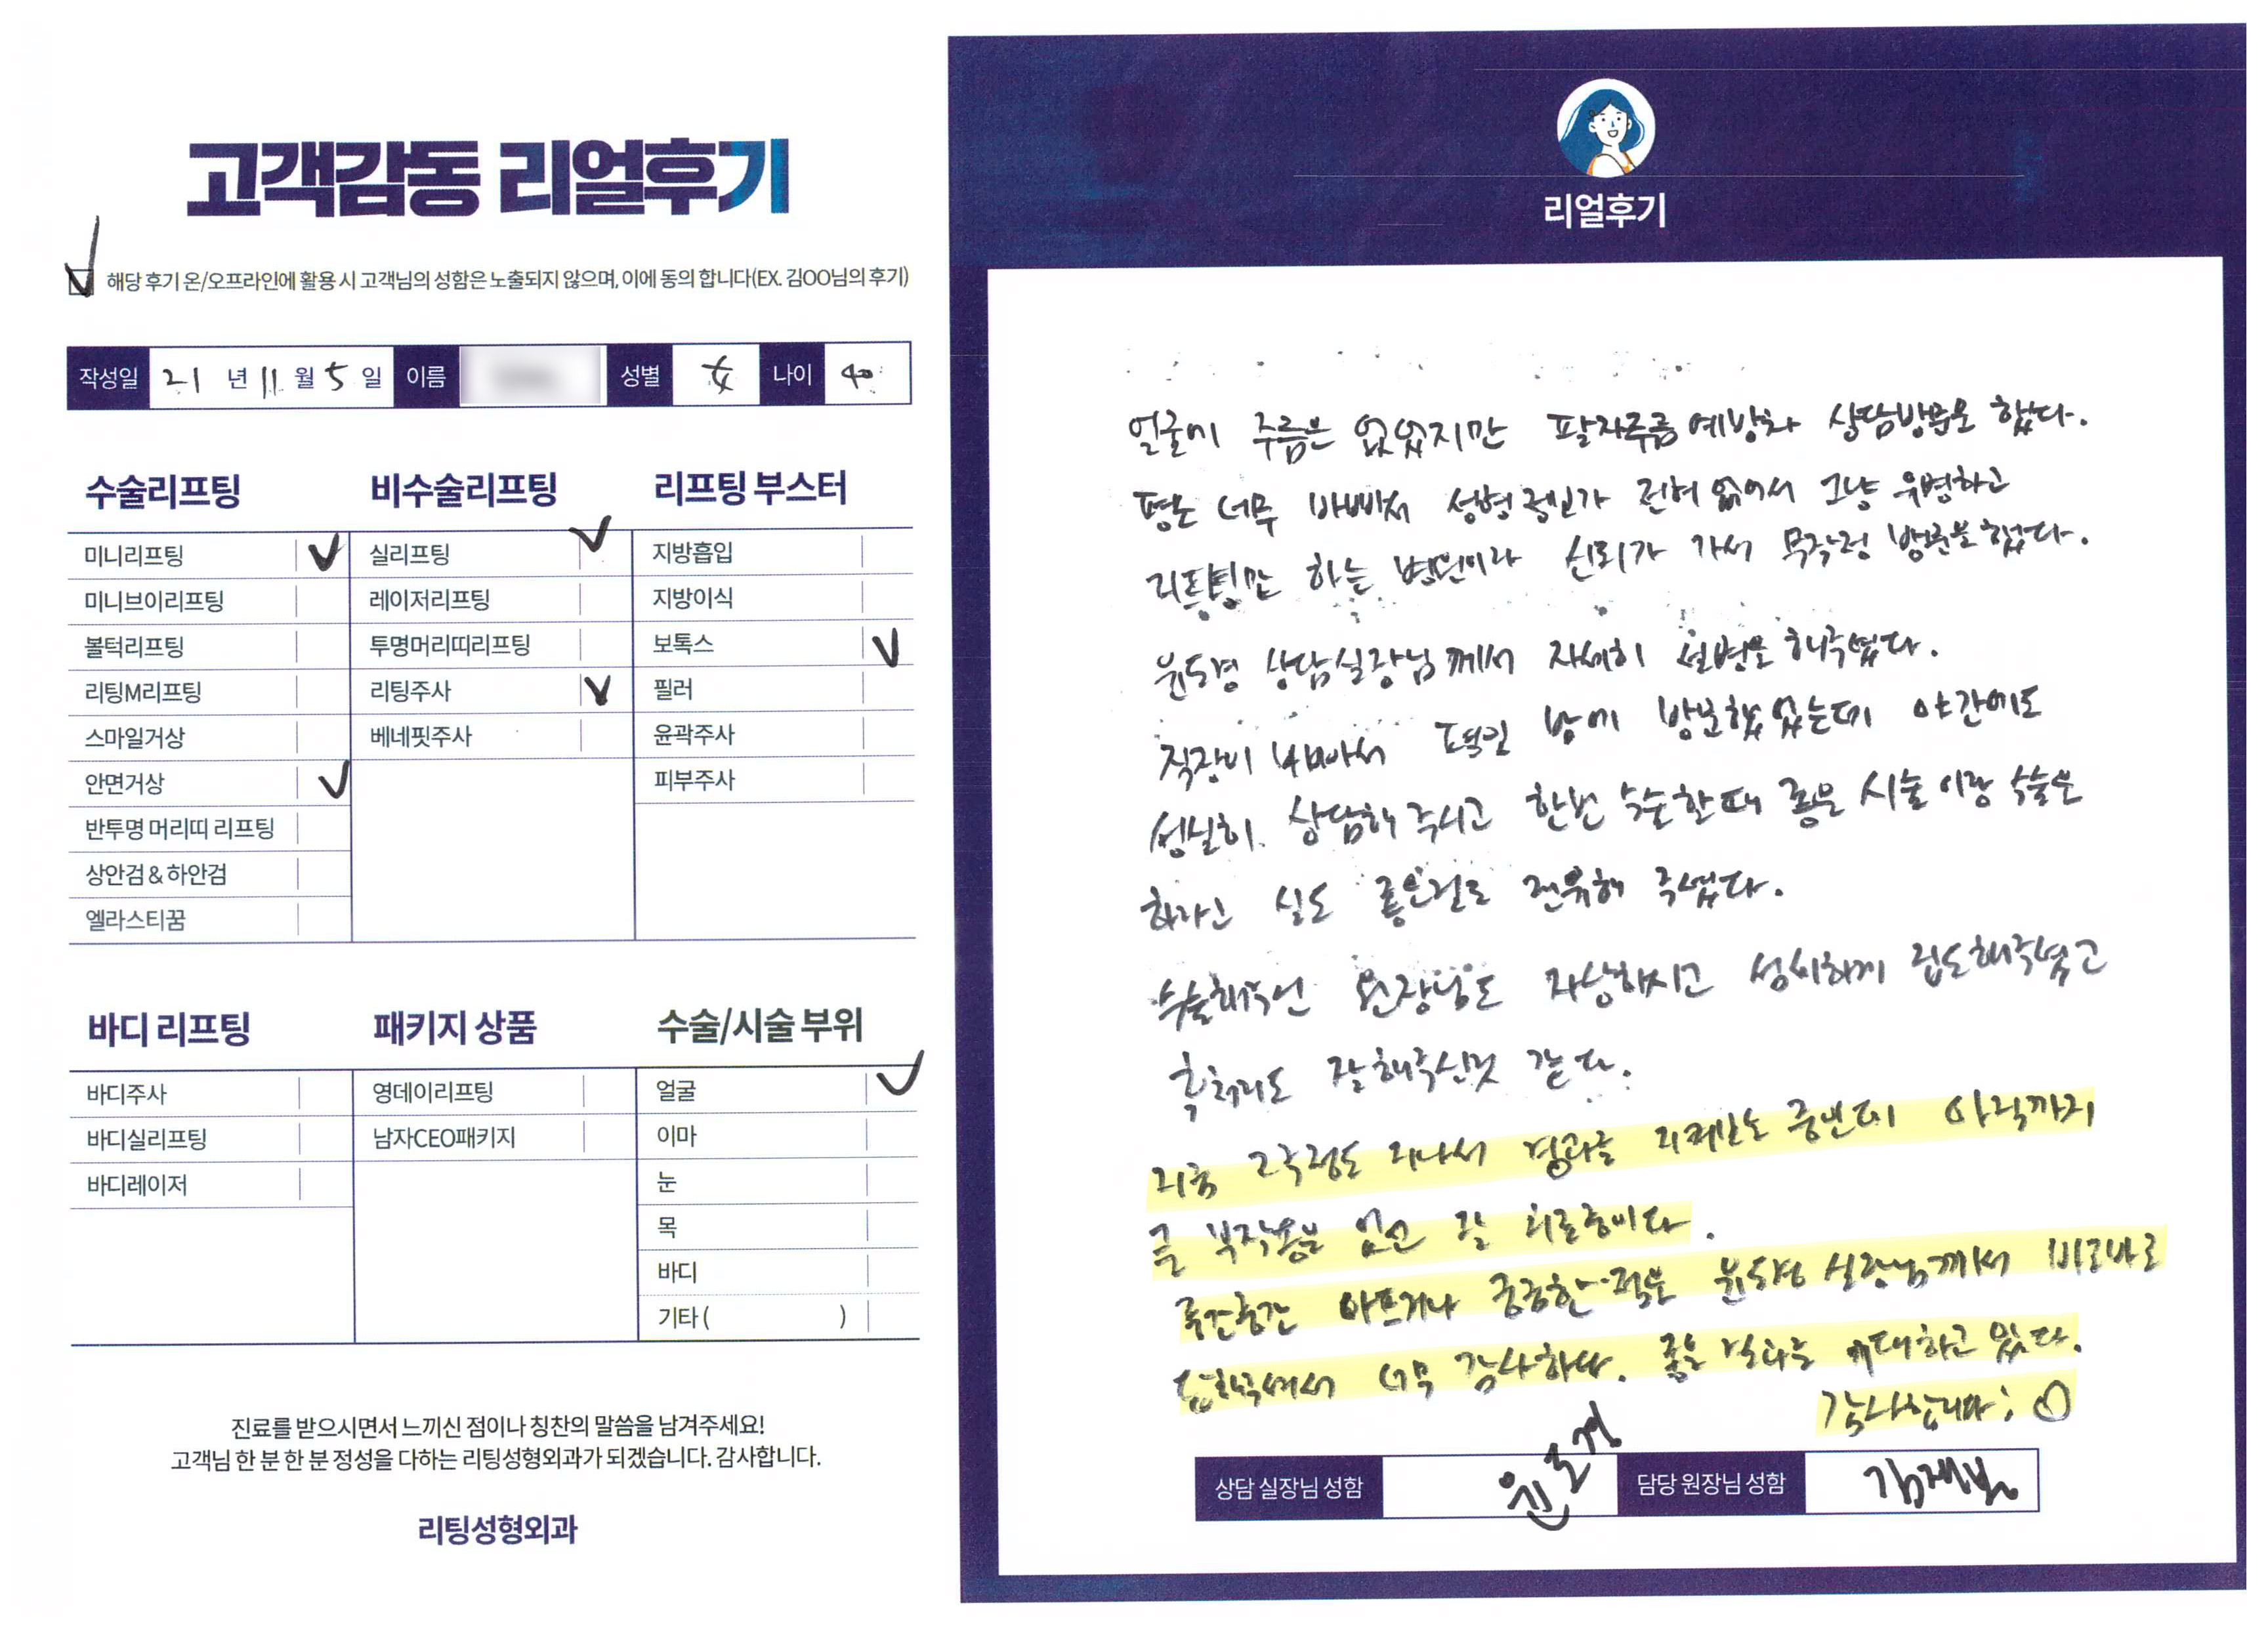 고객감동 리얼후기
해당 후기 온/오프라인에 활용 시 고객님의 성함은 노출되지 않으며, 이에 동의 합니다(EX. 김OO님의 후기)
작성일 21 년 11 월 5 일 이름 성별 女 나이 40
수술리프팅
미니리프팅
미니브이리프팅
볼턱리프팅
리팅M리프팅
스마일거상
안면거상
반투명 머리띠 리프팅
상안검 & 하안검
엘라스티꿈
비수술리프팅
실리프팅
레이저리프팅
투명머리띠리프팅
리팅주사
베네핏주사
리프팅 부스터
지방흡입
지방이식
보톡스
필러
윤곽주사
피부주사
바디 리프팅
바디주사
바디실리프팅
바디레이저
패키지 상품
영데이리프팅
남자CEO패키지
수술/시술 부위
얼굴
이마
눈
목
바디
기타 ( )
진료를 받으시면서 느끼신 점이나 칭찬의 말씀을 남겨주세요!
고객님 한 분 한 분 정성을 다하는 리팅성형외과가 되겠습니다. 감사합니다.
리팅성형외과
리얼후기
얼굴에 주름은 없었지만 팔자주름 예방차 상담방문을 했다.
평소 너무 바빠서 성형 가 전혀 없어서 그냥 유명하고
리프팅만 하는 병원이라 신뢰가 가서 무작정 방문을 했다.
윤도경 상담실장님께서 자세히 설명을 해주셨다.
직장이 바빠서 평일 밤에 방문했었는데 야간에도
성실히 상담해 주시고 한번 수술할때 좋은 시술이랑 수술은
실도 좋은걸로 권유해 주셨다.
수술해주신 원장님도 자상하시고 섬세하게 집도해주셨고
후처리도 잘해주신것 같다.
지금 2주정도 지나서 경과를 지켜보는 중인데 아직까지
큰 부작용은 없고 잘 회복중이다.
중간중간 아프거나 궁금한 점을 윤도경 실장님께서 바로바로
답해주셔서 너무 감사하다. 좋은 결과를 기대하고 있다.
감사합니다 ; ♡
상담 실장님 성함 윤도경 담당 원장님 성함